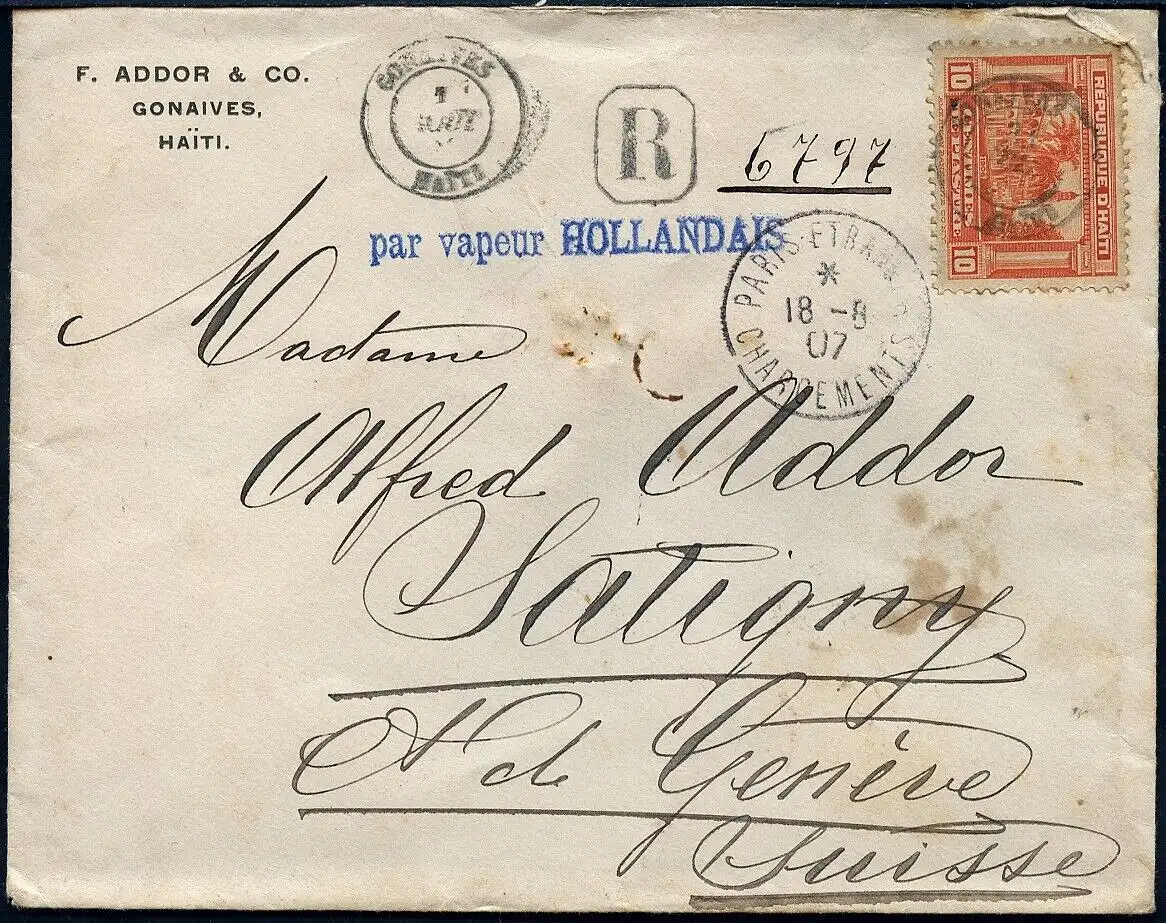 F. ADDOR & CO.
GONAIVES,
HAÏTI.
GONAIVES
HAÏTI
R
6797
par vapeur HOLLANDAIS
PARIS ETRANGER
18 -8
07
CHARGEMENTS
REPUBLIQUE D'HAITI
10
10
CENTIMES
DE PIASTRE
Madame
Alfred Addor
Satigny
Ct de Genève
Suisse